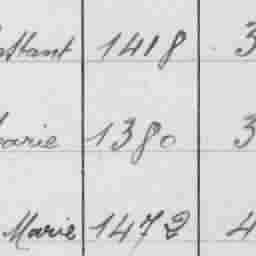 1418 3
arie 1380 3
Marie 1472 4